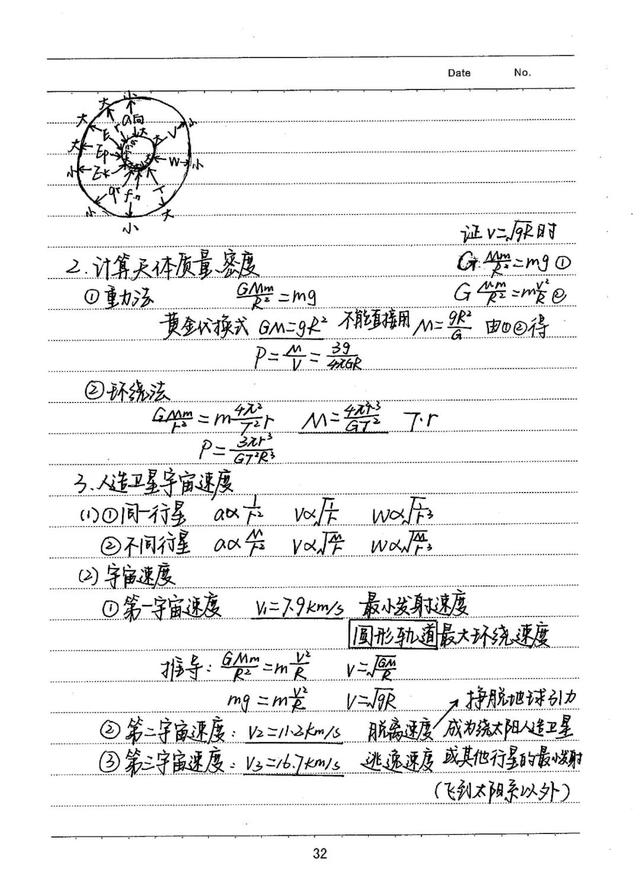 Date No.
小 大 a向 大 V 小
大 E
大 Ep W 小
小 Ek
小 q fn T 大
小
证 V=√gR 时
2.计算天体质量.密度 G Mm/R²=mg ①
①重力法 GMm/R²=mg G Mm/R²=mV²/R ②
黄金代换式 GM=gR² 不能直接用 M=gR²/G 由①②得
ρ=M/V=3g/4πGR
②环绕法
GMm/r²=m4π²/T² r M=4π²r³/GT² T.r
ρ=3πr³/GT²R³
3.人造卫星宇宙速度
(1)①同一行星 a∝1/r² V∝√1/r W∝√1/r³
②不同行星 a∝M/r² V∝√M/r W∝√M/r³
(2)宇宙速度
①第一宇宙速度 V₁=7.9km/s 最小发射速度
圆形轨道最大环绕速度
推导:GMm/R²=mV²/R V=√GM/R
mg=mV²/R V=√gR 挣脱地球引力
②第二宇宙速度:V₂=11.2km/s 脱离速度 成为绕太阳人造卫星
③第三宇宙速度:V₃=16.7km/s 逃逸速度 或其他行星的最小发射
(飞到太阳系以外)
32